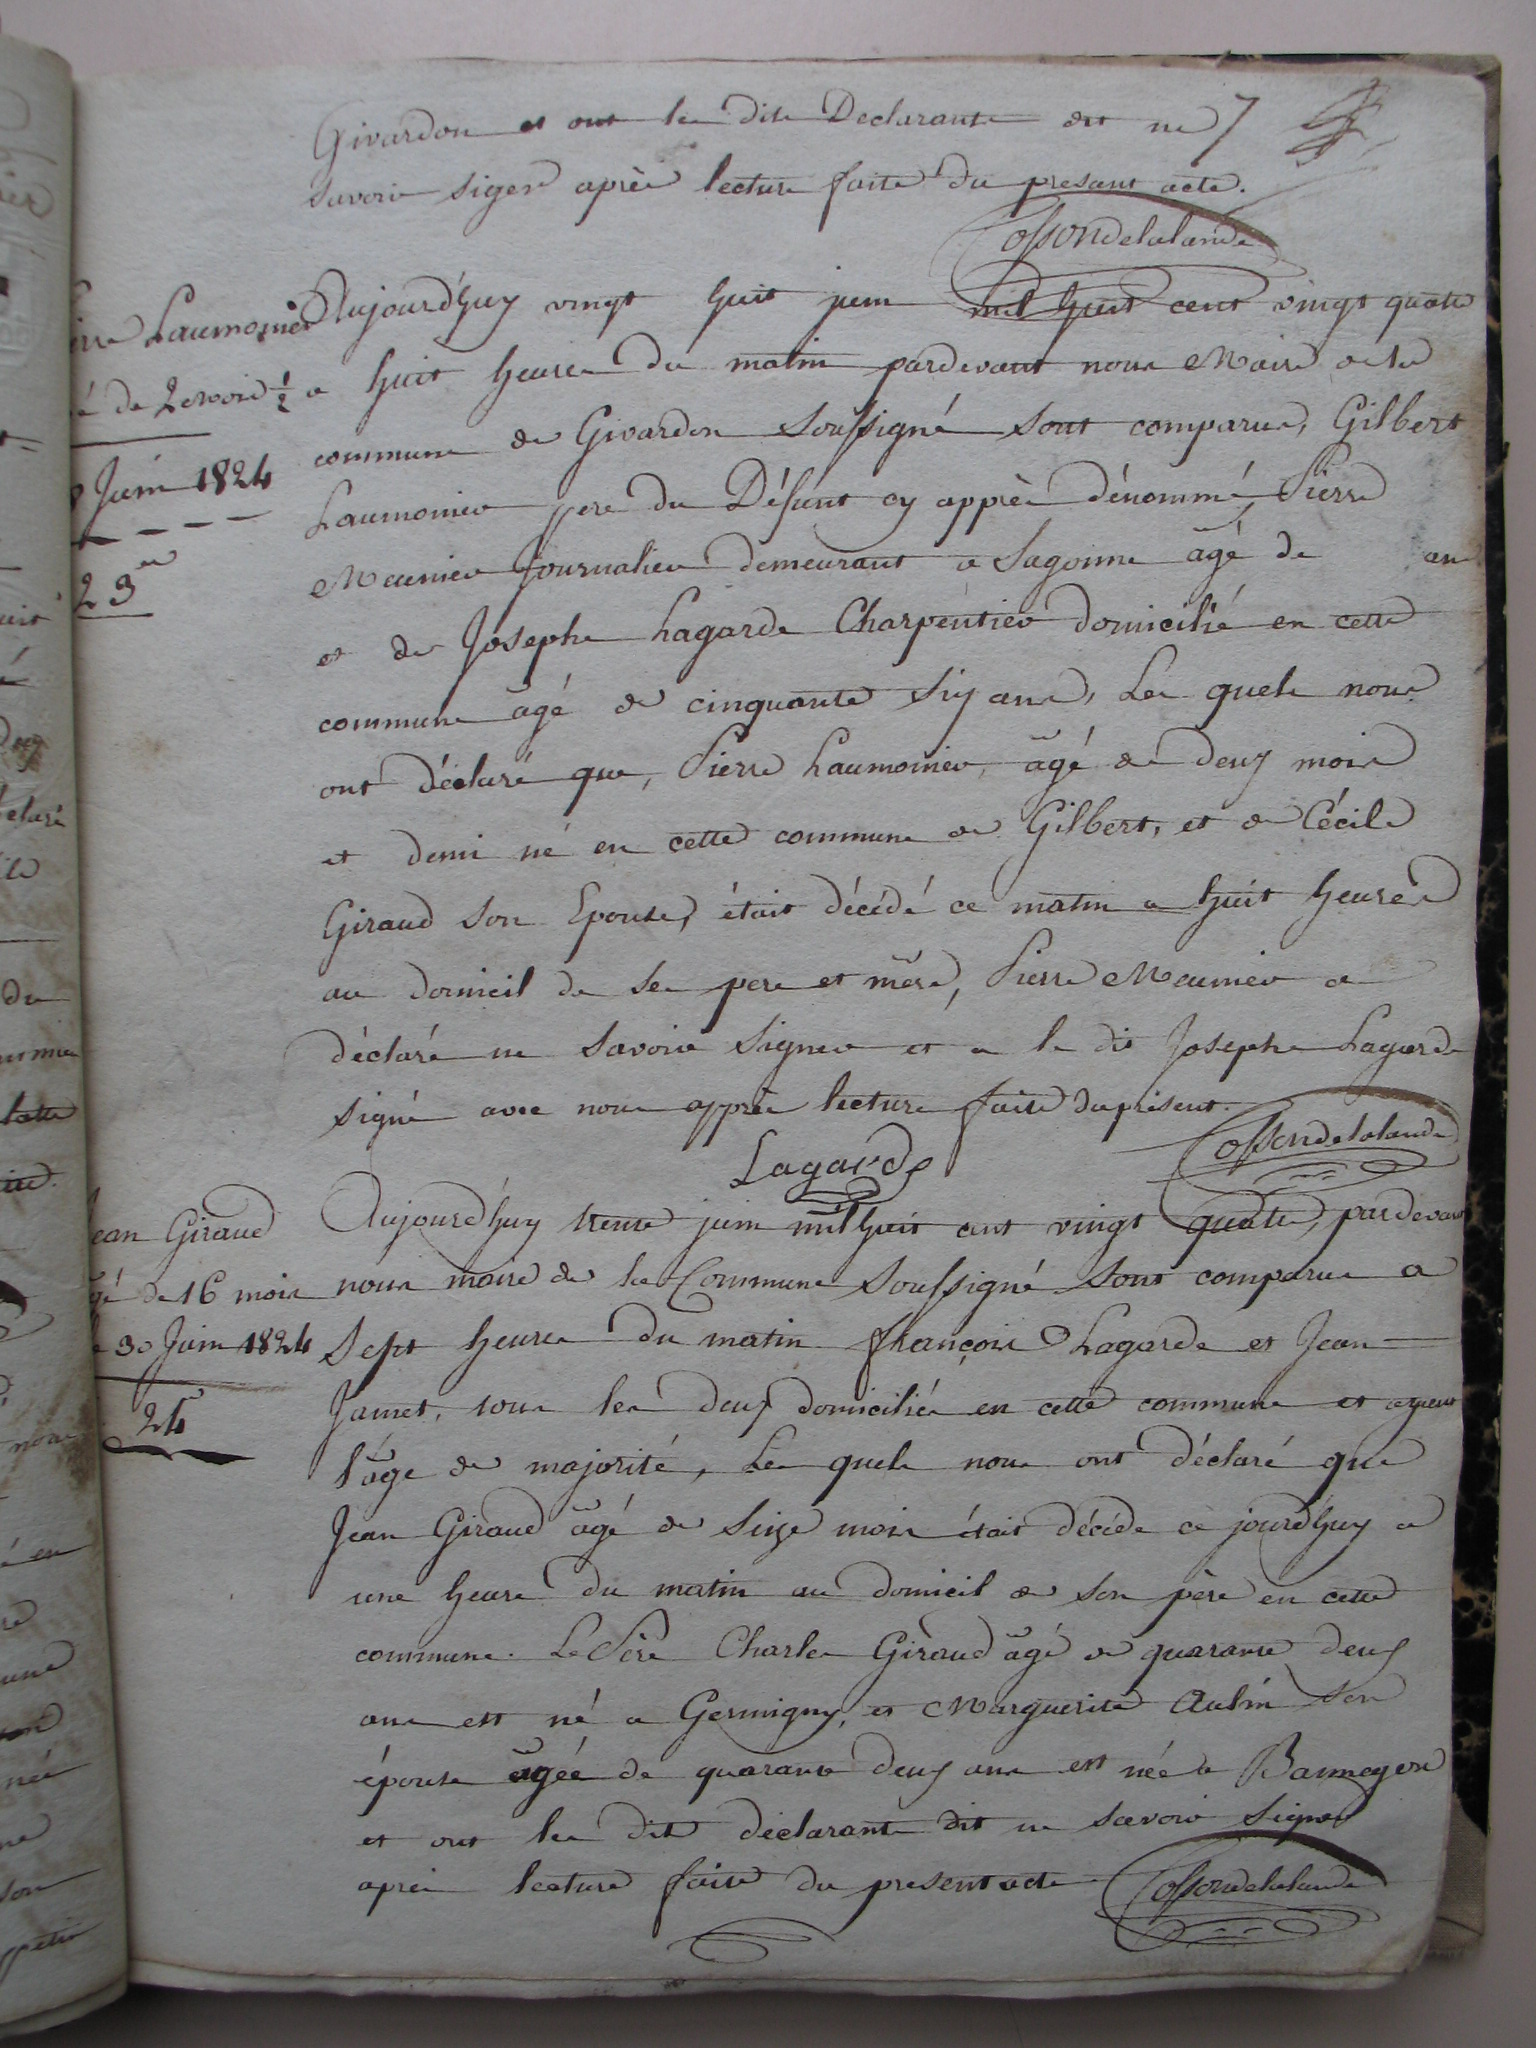 Givardon et ont les dits Declarants dit ne 7
savoir siger après lecture faite du presant acte.
Cossondelalande
Laumonier
é de 2 mois 1/2
Juin 1824
23e
Aujourd'huy vingt huit juin mil huit cent vingt quatre
a huit heures du matin pardevant nous Maire de la
commune de Givardon soussigné sont comparus, Gilbert
Laumonier pere du Défunt cy apprès dénommé, Pierre
Meunier Journalier demeurant a Sagonne âgé de ans
et de Josephe Lagarde Charpentier domicilié en cette
commune âgé de cinquante six ans, Les quels nous
ont déclaré que, Pierre Laumonier, âgé de deux mois
et demi né en cette commune de Gilbert, et de Cécile
Giraud son Epouse, était décédé ce matin a huit heures
au domicil de ses pere et mère, Pierre Meunier a
déclaré ne savoir signer et a le dit Josephe Lagarde
signé avec nous apprès lecture faite du présent.
Lagarde
Cossondelalande
Jean Giraud
gé de 16 mois
30 Juin 1824
24
Aujourd'huy trente juin mil huit cent vingt quatre, pardevant
nous maire de la Commune soussigné sont comparus a
Sept heures du matin françois Lagarde et Jean
Jamet, tous les deux domiciliés en cette commune et ayent
l'âge de majorité, Les quels nous ont déclaré que
Jean Giraud âgé de seize mois était décéde ce jourd'huy a
une heure du matin au domicil de son père en cette
commune. Le Père Charles Giraud âgé de quarante deux
ans est né a Germigny, et Marguerite Aulin son
épouse agée de quarante deux ans est née a Bannegon
et ont les dits déclarants dit ne savoir signer
après lecture faite du present acte
Cossondelalande